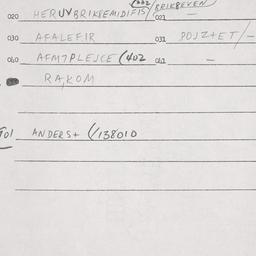 020 HERUVBRIKEEMIDIFIS/BRIKBEVEN
021 —
030 AFALEFIR 031 DOJZ+ET/—
040 AFM7PLEJCE (402 041 —
RA,KOM
701 ANDERS+ (/138010